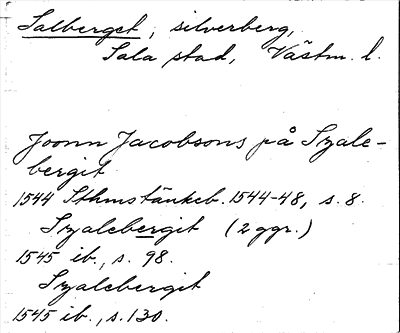 Salberget, silverberg,
Sala stad, Västm. l.
Joonn Jacobsons på Szale-
bergit
1544 Sthmstänkeb. 1544-48, s. 8.
Szalebergit (2 ggr.)
1545 ib., s. 98.
Szalebergit
1545 ib., s. 130.